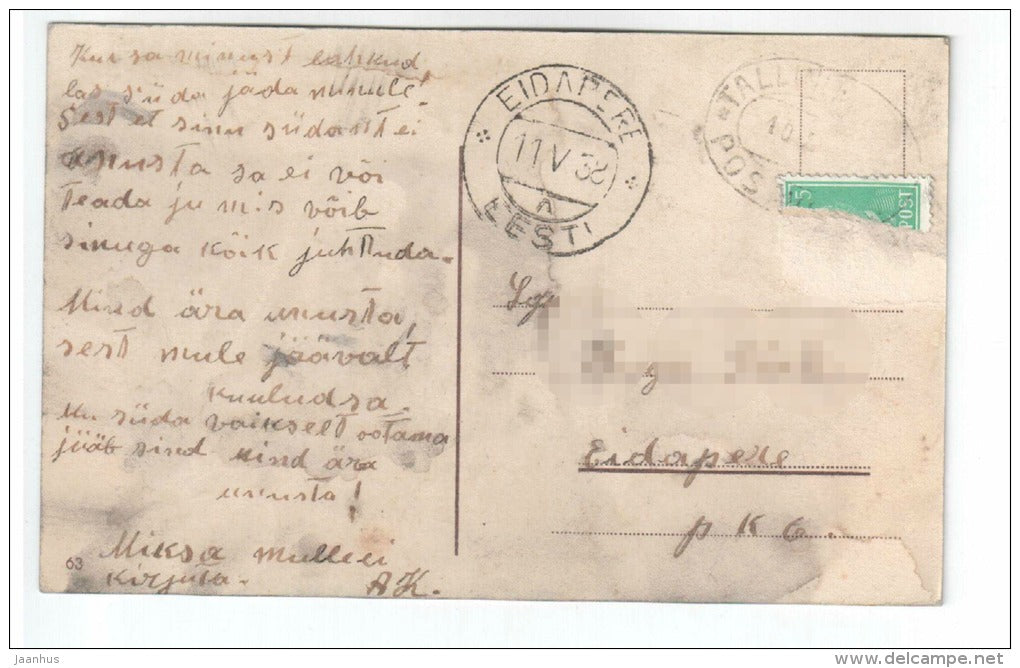 Kui sa minust lahkud
las süda jäda minule!
Sest et sinu südant ei
asusta sa ei või
Teada ju mis võib
sinuga kõik juhtuda.
Mind ära unusta,
sest mule jäävalt
kuuludsa.
Mu süda vaikselt ootama
jääb sind mind ära
unusta!
Miksa mulle ei
kirjuta.
A.K.
63
EIDAPERE
11.V.38
A
EESTI
TALL
10
POS
5
POST
Eidapere
p k 6.
jaanhus
www.delcampe.net